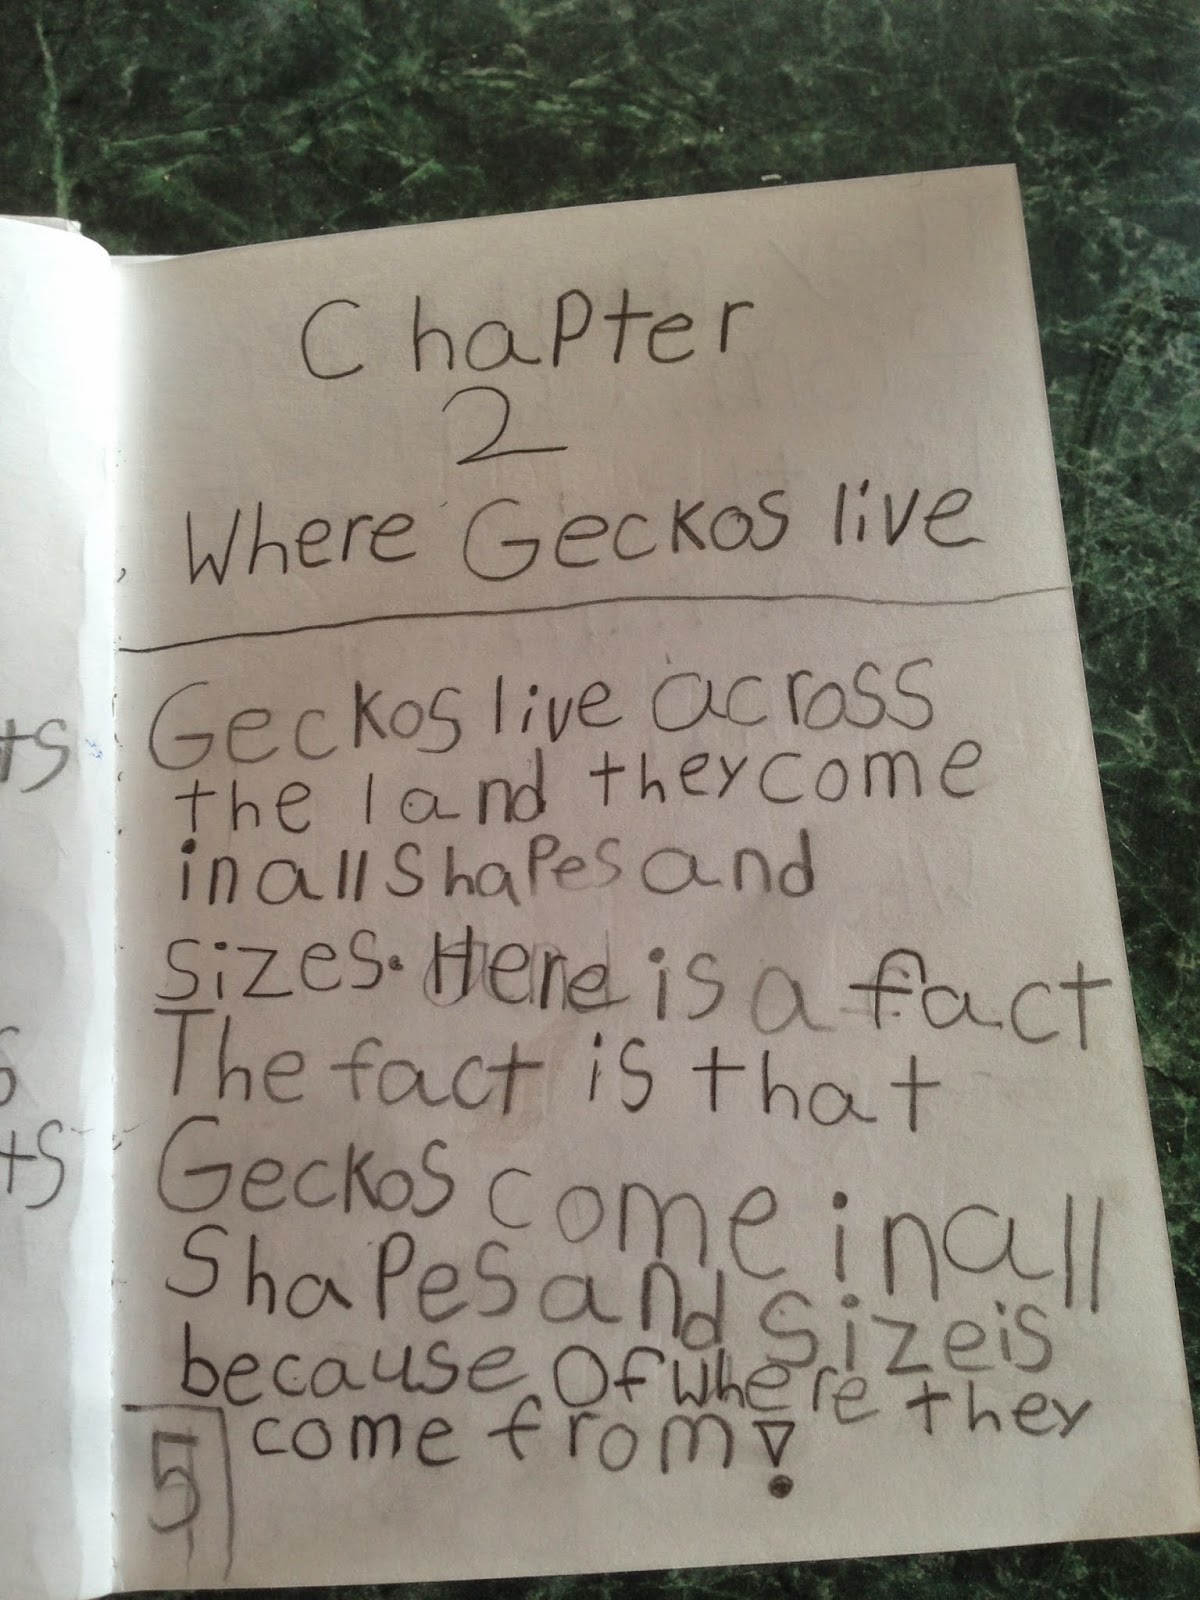 Chapter
2
Where Geckos live
Geckos live across
the land they come
in all shapes and
sizes. Here is a fact
The fact is that
Geckos come in all
Shapes and sizeis
because of where they
come from!
5
ts
s
ts